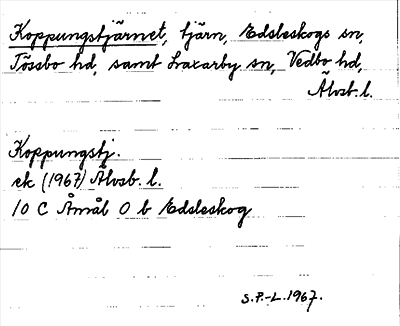 Koppungstjärnet, tjärn, Edsleskogs sn,
Tössbo hd, samt Laxarby sn, Vedbo hd,
Älvsb. l.
Koppungstj.
ek (1967) Älvsb. l.
10 C Åmål O b Edsleskog
S.P.-L. 1967.